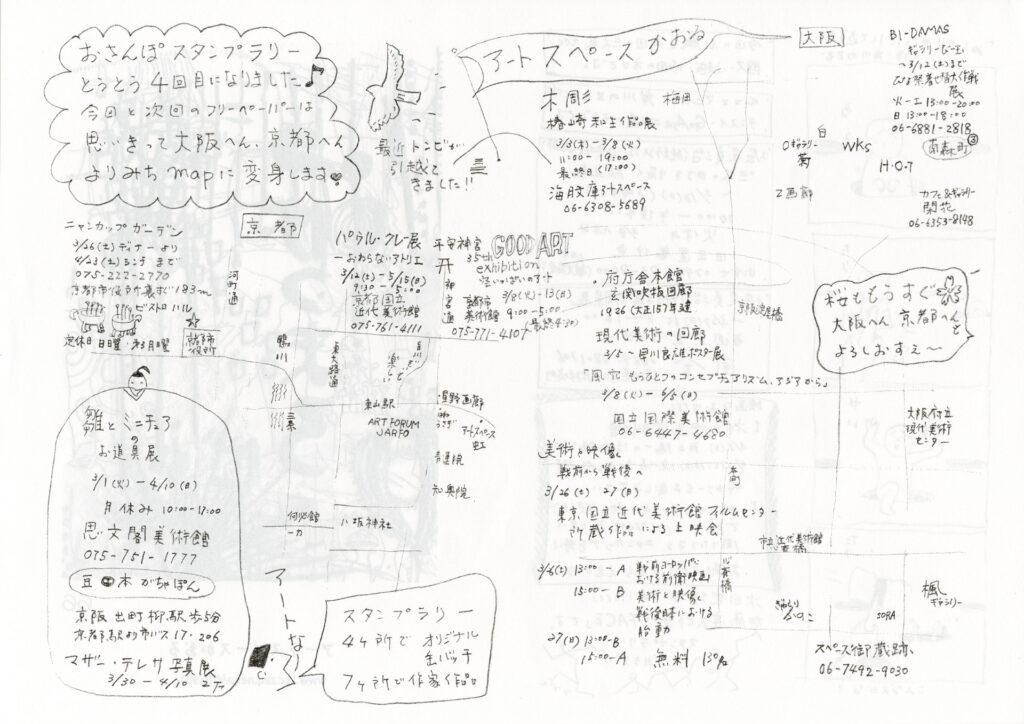 おさんぽスタンプラリー
とうとう4回目になりました♪
今回と次回のフリーペーパーは
思いきって大阪へん、京都へん
よりみちmapに変身します
最近トンビが
引越して
きました!!
アートスペースかおる
木彫 梅田
椿崎和生作品展
3/3(木)〜3/8(火)
11:00-19:00
最終日(17:00)
海月文庫アートスペース
06-6308-5689
大阪
BI-DAMAS
ギャラリーびー玉
〜3/12(土)まで
展
火〜土 13:00-20:00
日 13:00-18:00
06-6881-2818
南森町
白
ギャラリー
菊
wks
H.O.T
Z画廊
カフェ&ギャラリー
閑花
06-6353-8198
桜ももうすぐ
大阪へん 京都へんを
よろしおすえ〜
京都
ニャンカップガーデン
3/26(土)ディナーより
4/23(土)ランチまで
075-222-2770
京都市役所裏ホリ183m
ビストロハル
定休日 日曜・第3月曜
河町通
京都市
役所
パウル・クレー展
ーおわらないアトリエ
3/12(土)-5/15(日)
9:30-5:00
京都国立
近代美術館
075-761-4111
平安神宮
神宮通
GOOD ART
35th
exhibition
3/8(火)-13(日)
9:00-5:00
最終4:30
京都市
美術館
075-771-4107
府庁舎本館
玄関吹抜回廊
1926(大正15)年建
現代美術の回廊
3/5〜早川良雄ポスター展
京阪淀屋橋
「風穴 もうひとつのコンセプチュアリズム、アジアから」
3/8(火)-6/5(日)
国立国際美術館
06-6447-4680
大阪府立
現代美術
センター
鴨川
三条
東大路通
白川
東山駅
ART FORUM
JARFO
星野画廊
アートスペース
虹
青蓮院
知恩院
何必館
一力
八坂神社
雛とミニチュア
の
お道具展
3/1(火)-4/10(日)
月休み 10:00-17:00
思文閣美術館
075-751-1777
豆本がちゃぽん
京阪 出町柳駅歩5分
京都駅より市バス17・206
マザー・テレサ写真展
3/30-4/10
アートな
スタンプラリー
4ヶ所でオリジナル
缶バッチ
7ヶ所で作家作品
美術と映像
戦前から戦後へ
3/26(土) 27(日)
東京国立近代美術館フィルムセンター
所蔵作品による上映会
本町
3/26(土) 13:00-A
15:00-B
戦前ヨーロッパに
おける前衛映画
美術と映像
戦後日本における
胎動
27(日) 13:00-B
15:00-A
無料
心斎橋
市立近代美術館
心斎橋
SORA
楓
ギャラリー
スペース御蔵跡
06-7492-9030